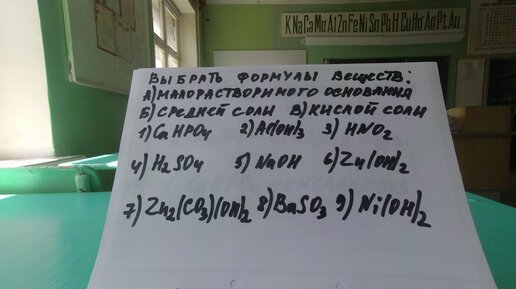 K Na Ca Mg Al Zn Fe Ni Sn Pb H Cu Hg Ag Pt Au
ВЫБРАТЬ ФОРМУЛЫ ВЕЩЕСТВ:
А) МАЛОРАСТВОРИМОГО ОСНОВАНИЯ
Б) СРЕДНЕЙ СОЛИ В) КИСЛОЙ СОЛИ
1) CaHPO4 2) Al(OH)3 3) HNO2
4) H2SO4 5) NaOH 6) Zn(OH)2
7) Zn2(CO3)(OH)2 8) BaSO3 9) Ni(OH)2